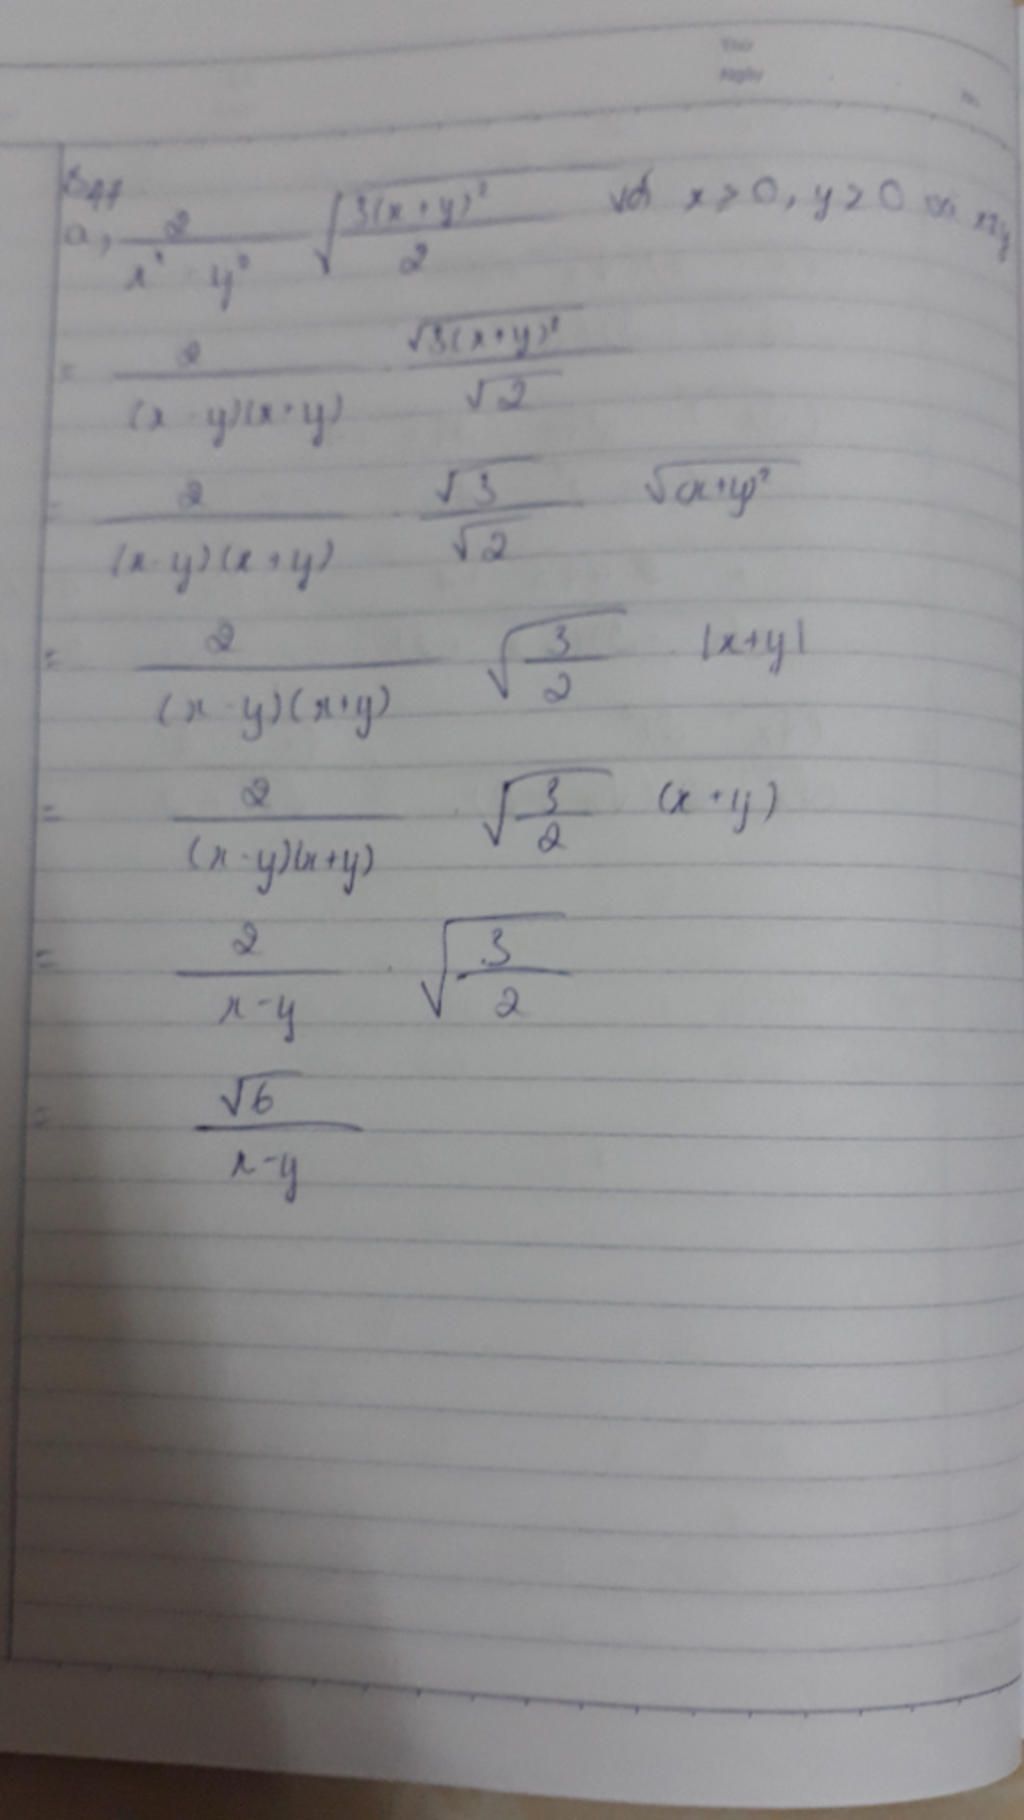 Thứ
Ngày
B47
a, 2/(x² - y²) √(3(x+y)²/2) với x ≥ 0, y ≥ 0 và x≠y
= 2/((x-y)(x+y)) . √(3(x+y)²)/√2
= 2/((x-y)(x+y)) . √3/√2 . √(x+y)²
= 2/((x-y)(x+y)) . √(3/2) . |x+y|
= 2/((x-y)(x+y)) . √(3/2) (x+y)
= 2/(x-y) . √(3/2)
= √6/(x-y)